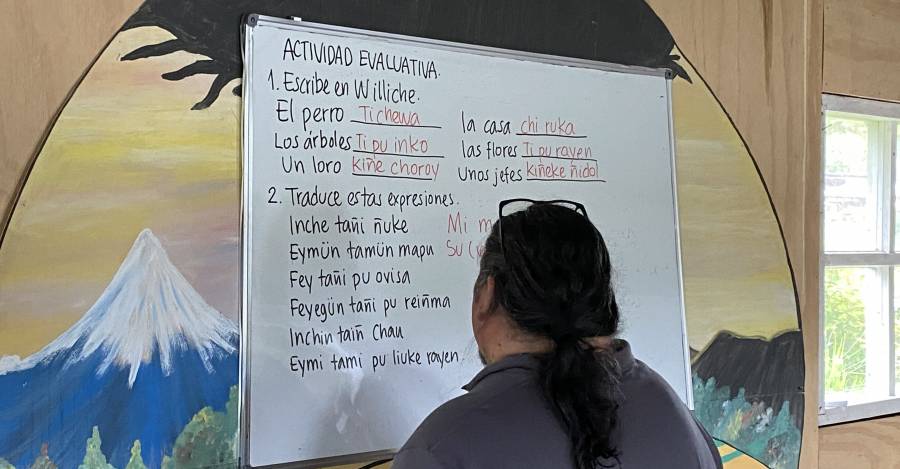 ACTIVIDAD EVALUATIVA.
1. Escribe en Williche.
El perro Tichewa la casa chi ruka
Los árboles Ti pu inko las flores Ti pu rayen
Un loro kiñe choroy Unos jefes kiñeke ñidol
2. Traduce estas expresiones.
Inche tañi ñuke Mi
Eymün tamün mapu Su
Fey tañi pu ovisa
Feyegün tañi pu reiñma
Inchin taiñ Chau
Eymi tami pu liuke rayen